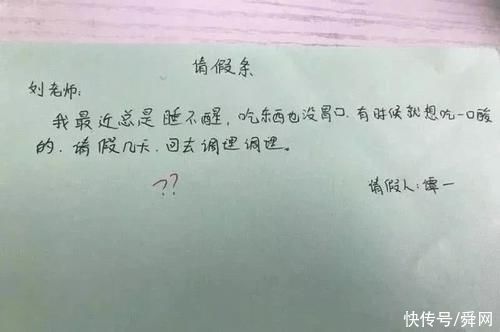 请假条
刘老师:
我最近总是睡不醒,吃东西也没胃口.有时候就想吃一口酸
的.请假几天.回去调理调理。
??
请假人:谭一
快传号/舜网